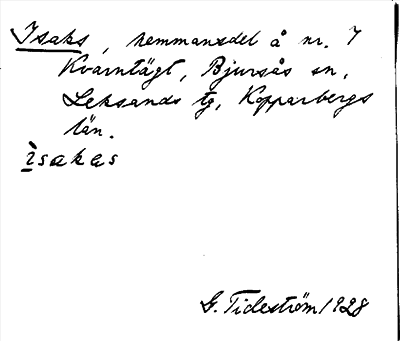 Isaks, hemmansdel å nr. 7
Kvarntägt, Bjursås sn,
Leksands tg, Kopparbergs
län.
ìsakas
G. Tideström 1928